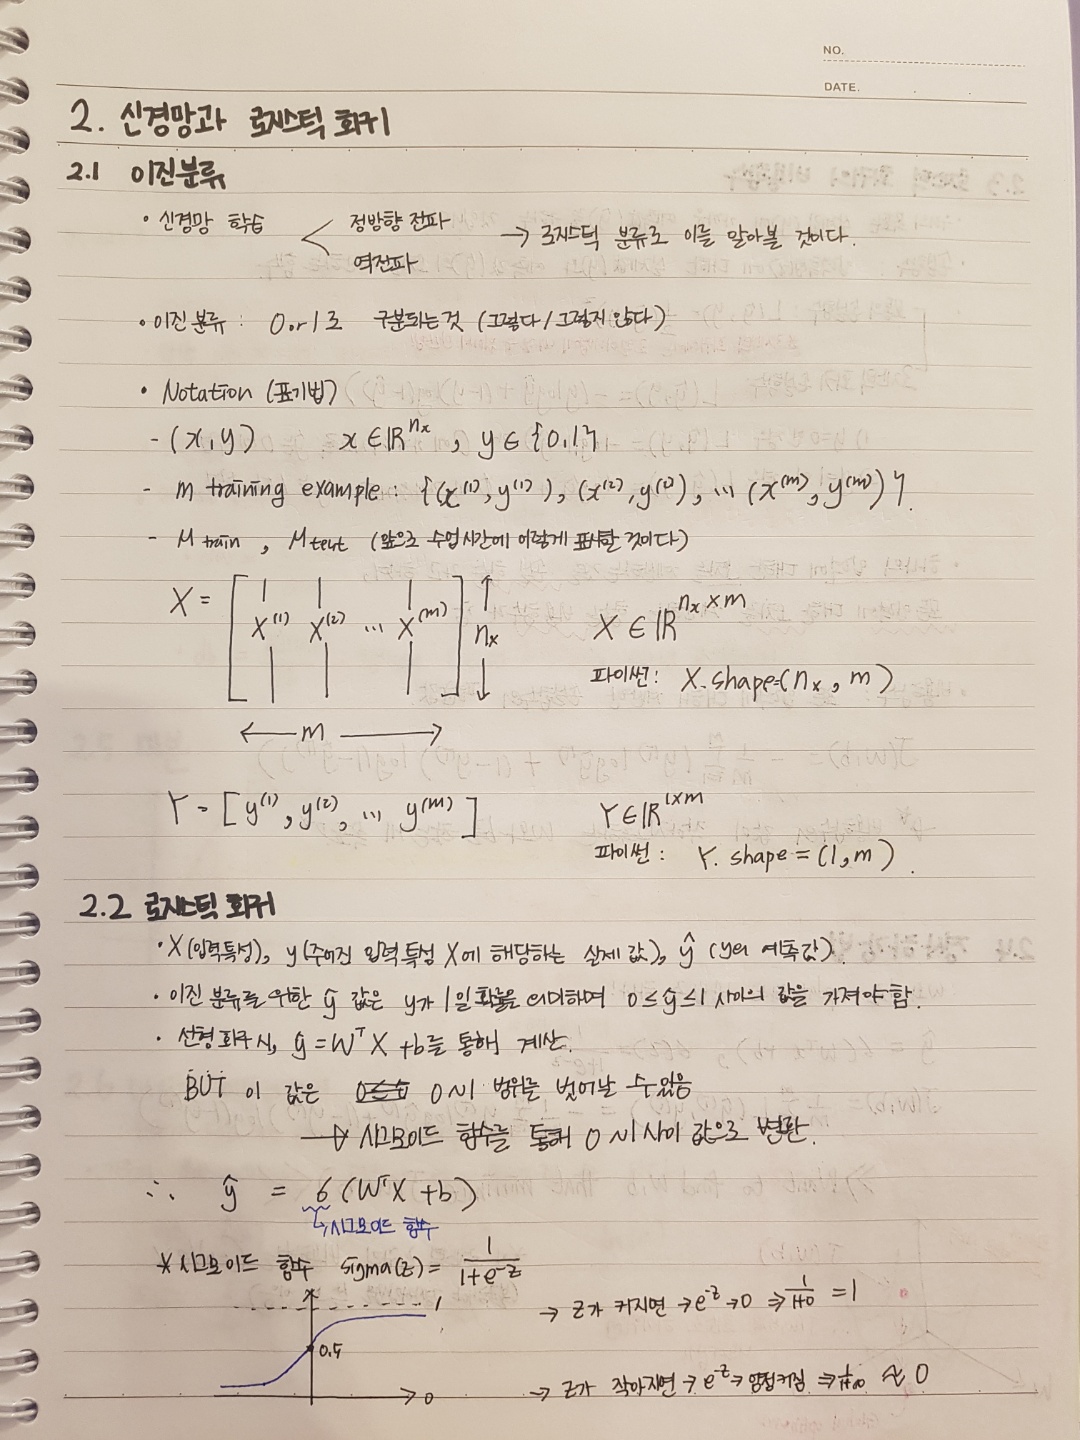 NO.
DATE.
2. 신경망과 로지스틱 회귀
2.1 이진분류
• 신경망 학습 < 정방향 전파 → 로지스틱 분류로 이를 알아볼 것이다.
역전파
• 이진 분류 : 0 or 1로 구분되는 것 (그렇다 / 그렇지 않다)
• Notation (표기법)
- (x, y) x ∈ ℝ^nx , y ∈ {0,1}
- m training example : {(x^(1), y^(1)), (x^(2), y^(2)), ... (x^(m), y^(m))}.
- M train , M test (앞으로 수업시간에 이렇게 표시할 것이다)
X = [ X^(1) X^(2) ... X^(m) ] n_x X ∈ ℝ^(n_x × m)
파이썬 : X.shape=(n_x, m)
← m →
Y = [ y^(1), y^(2), ... y^(m) ] Y ∈ ℝ^(1×m)
파이썬 : Y. shape = (1, m).
2.2 로지스틱 회귀
• X(입력특성), y(주어진 입력특성 X에 해당하는 실제 값), ŷ (y의 예측값).
• 이진 분류를 위한 ŷ 값은 y가 1일 확률을 의미하며 0 ≤ ŷ ≤ 1 사이의 값을 가져야 함.
• 선형 회귀시, ŷ = W^T X + b를 통해 계산.
BUT 이 값은 0 ~ 1 범위를 벗어날 수 있음
→ 시그모이드 함수를 통해 0 ~ 1 사이 값으로 변환.
∴ ŷ = σ (W^T X + b)
↳ 시그모이드 함수
* 시그모이드 함수 sigma(z) = 1 / (1+e^-z)
1
→ z가 커지면 → e^-z → 0 ⇒ 1/(1+0) = 1
0.5
→ z가 작아지면 → e^-z → 엄청커짐 ⇒ 1/(1+∞) ≈ 0
0